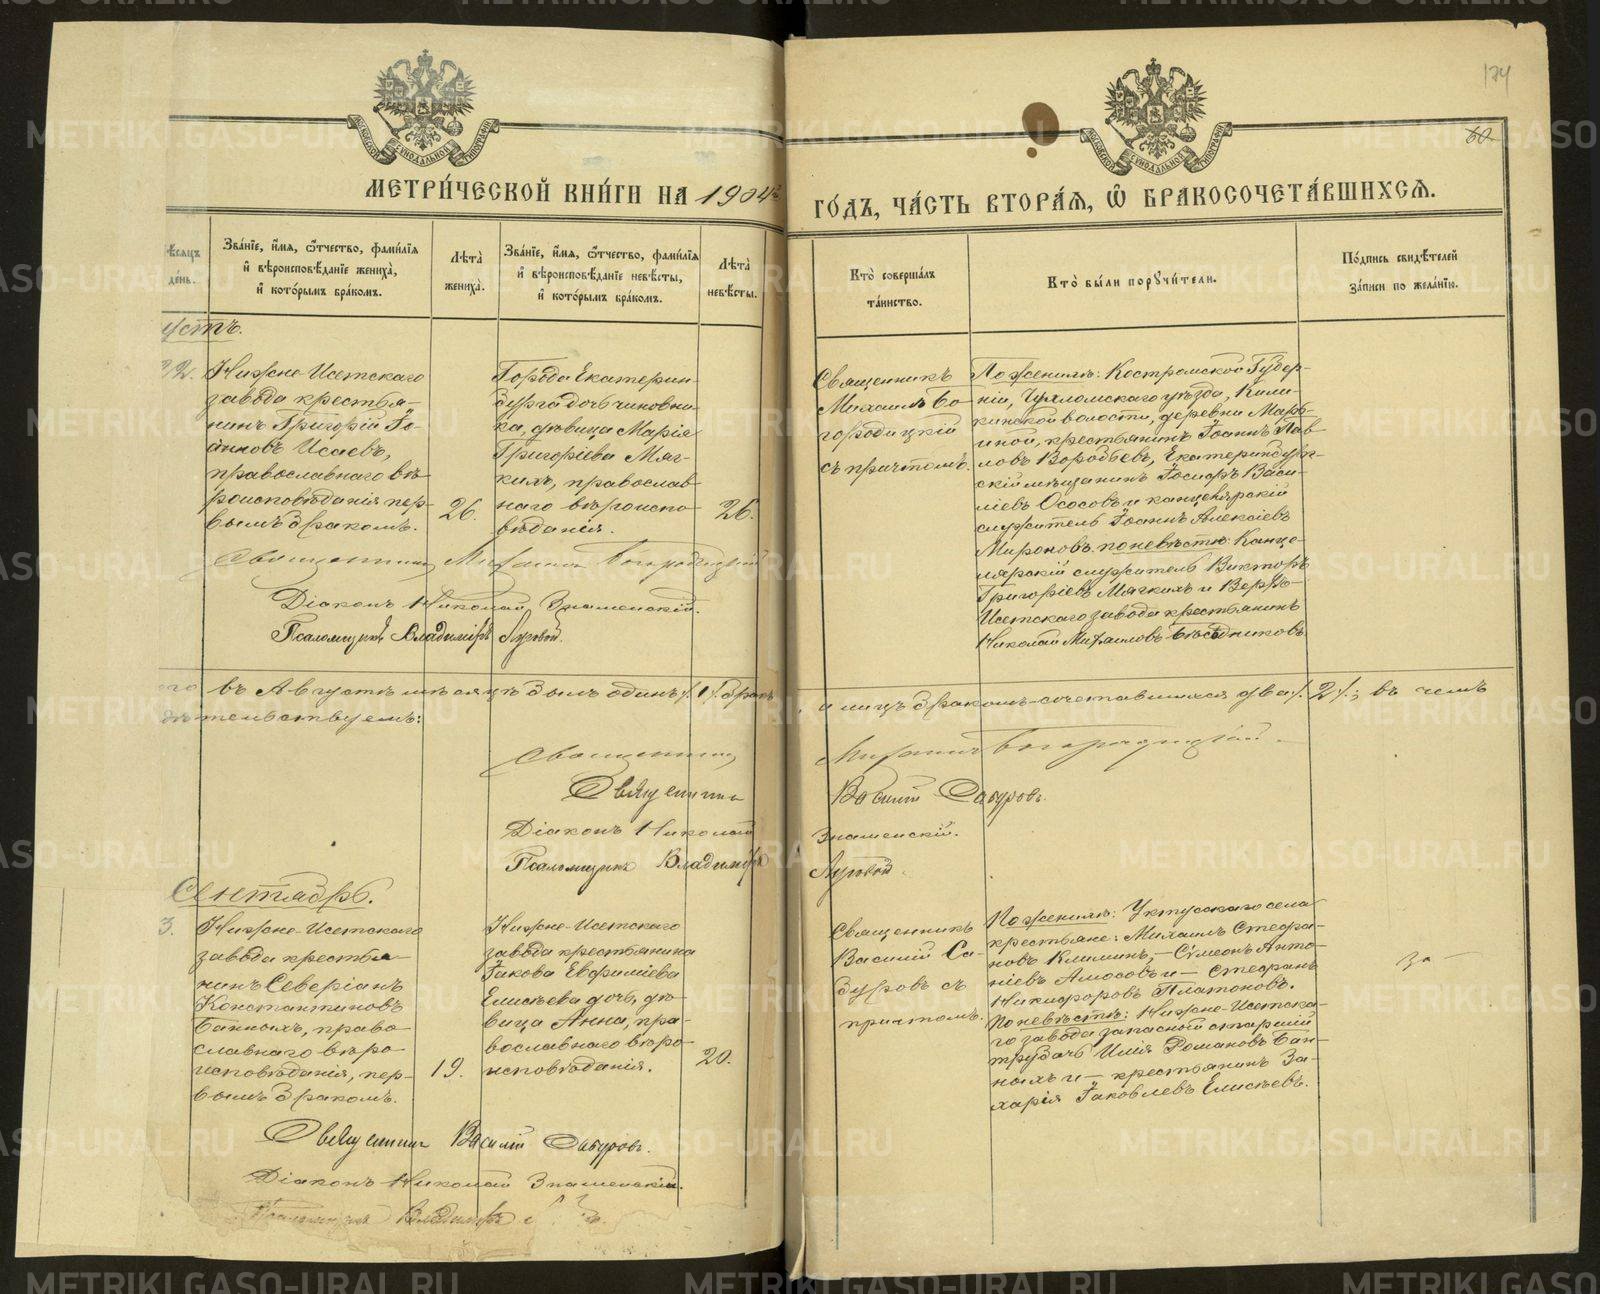 174
60
МЕТРИ́ЧЕСКОЙ КНИ́ГИ НА 1904
ГО́ДЪ, ЧА́СТЬ ВТОРА́Я, Ѡ҆ БРАКОСОЧЕТА́ВШИХСЯ.
ѣсяцъ
де́нь.
Зва́нїе, и҆́мя, ѻ҆́тчество, фами́лїя
и҆ вѣроисповѣ́данїе жениха̀,
и҆ кото́рымъ бра́комъ.
Лѣта̀
жениха̀.
Зва́нїе, и҆́мя, ѻ҆́тчество, фами́лїя
и҆ вѣроисповѣ́данїе невѣ́сты,
и҆ кото́рымъ бра́комъ.
Лѣта̀
невѣ́сты.
Кто̀ соверша́лъ
та́инство.
Кто̀ бы́ли порꙋчи́тели.
По́дпись свидѣ́телей
за́писи по жела́нїю.
устъ.
22.
Нижне-Исетскаго
завода крестья-
нинъ Григорій Іо-
анновъ Исаевъ,
православнаго вѣ-
роисповѣданія пер-
вымъ бракомъ.
26.
Города Екатерин-
бурга дочь чиновни-
ка, дѣвица Марія
Григоріева Мяг-
кихъ, православ-
наго вѣроиспо-
вѣданія.
26.
Священникъ
Михаилъ Бо-
городицкій
съ причтомъ.
По женихѣ: Костромской Губер-
ніи, Чухломскаго уѣзда,
волости, деревни
крестьянинъ Іоаннъ Пав-
ловъ Воробьевъ, Екатеринбург-
скій мѣщанинъ Іосифъ Васи-
ліевъ Ососовъ и канцелярскій
служитель Іоаннъ Алексіевъ
Мироновъ. по невѣстѣ: Канце-
лярскій служитель Викторъ
Григоріевъ Мягкихъ и Верхъ-
Исетскаго завода крестьянинъ
Николай Михаиловъ
Священникъ Михаилъ Богородицкій
Діаконъ Николай Знаменскій.
Псаломщикъ Владиміръ Луговой.
въ Августѣ мѣсяцѣ былъ одинъ /1/ бракъ
и лицъ бракомъ сочетавшихся два /2/; въ чемъ
дѣтельствуемъ:
Священникъ Михаилъ Богородицкій
Священникъ Василій Сабуровъ.
Діаконъ Николай Знаменскій.
Псаломщикъ Владиміръ Луговой
Сентябрь.
3.
Нижне-Исетскаго
завода крестья-
нинъ Северіанъ
Константиновъ
Банныхъ, право-
славнаго вѣро-
исповѣданія, пер-
вымъ бракомъ.
19.
Нижне-Исетскаго
завода крестьянина
Іакова Евфиміева
Елисѣева дочь, дѣ-
вица Анна, пра-
вославнаго вѣро-
исповѣданія.
20.
Священникъ
Василій Са-
буровъ съ
причтомъ.
По женихѣ: Уктусскаго села
крестьяне: Михаилъ Стефа-
новъ Климинъ,- Сѵмеонъ Анто-
ніевъ Амосовъ и- Стефанъ
Никифоровъ Платоновъ.
По невѣстѣ: Нижне-Исетска-
го завода запасный старшій
трубачъ Илія Романовъ Бан-
ныхъ и- крестьянинъ За-
харія Іаковлевъ Елисѣевъ.
Священникъ Василій Сабуровъ.
Діаконъ Николай Знаменскій.
Псаломщикъ Владиміръ
METRIKI.GASO-URAL.RU